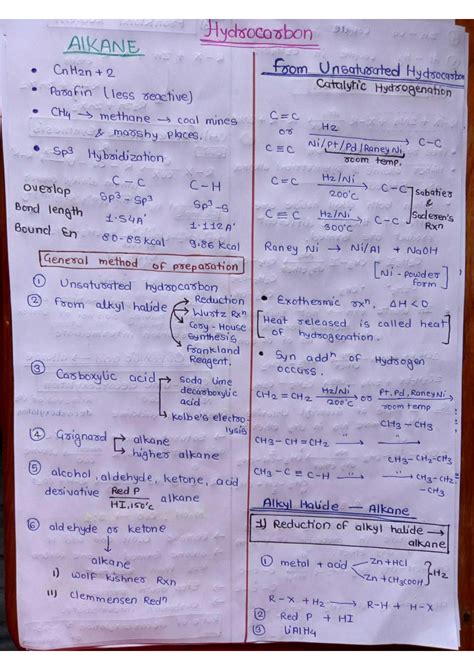 Hydrocarbon
AlKANE
• CnH2n+2
• Parafin (less reactive)
• CH4 → methane → coal mines
& marshy places.
• Sp3 Hybridization
C – C    C – H
overlap    Sp3 – Sp3    Sp3 – S
Bond length    1.54A°    1.112A°
Bound En    80-85 Kcal    9.86 Kcal
General method of preparation
① Unsaturated hydrocarbon
② from alkyl halide → Reduction
→ Wurtz Rxn
→ Cory-House
Synthesis
→ Frankland
Reagent.
③ Carboxylic acid → soda lime
decarboxylic
acid
→ kolbe's electro-
lysis
④ Grignard → alkane
→ higher alkane
⑤ alcohol, aldehyde, ketone, acid
derivative Red P / HI, 150°C alkane
⑥ aldehyde or ketone
↓
alkane
i) Wolf kishner Rxn
ii) Clemmensen Redn
from Unsaturated Hydrocarbon
Catalytic Hydrogenation
C=C
or    H2
C≡C    Ni/Pt/Pd/Raney Ni,    C-C
room temp.
C=C    H2/Ni → 200°C    C-C    Sabatier
&
C≡C    H2/Ni → 300°C    C-C    Saderen's
Rxn
Raney Ni → Ni/Al + NaOH
[Ni-powder
form]
• Exothermic rxn, ΔH<0
[Heat released is called heat
of hydrogenation.]
• Syn addn of Hydrogen
occurs.
CH2=CH2 H2/Ni → 200°C or Pt,Pd,Raney Ni → room temp
CH3-CH3
CH3-CH=CH2 → " →
CH3-CH2-CH3
CH3-C≡C-H → " →
CH3-CH2-CH3
Alkyl Halide — Alkane
1) Reduction of alkyl halide →
alkane
① metal + acid → Zn+HCl
→ Zn+CH3COOH } H2
R-X + H2 → R-H + H-X
② Red P + HI
③ LiAlH4